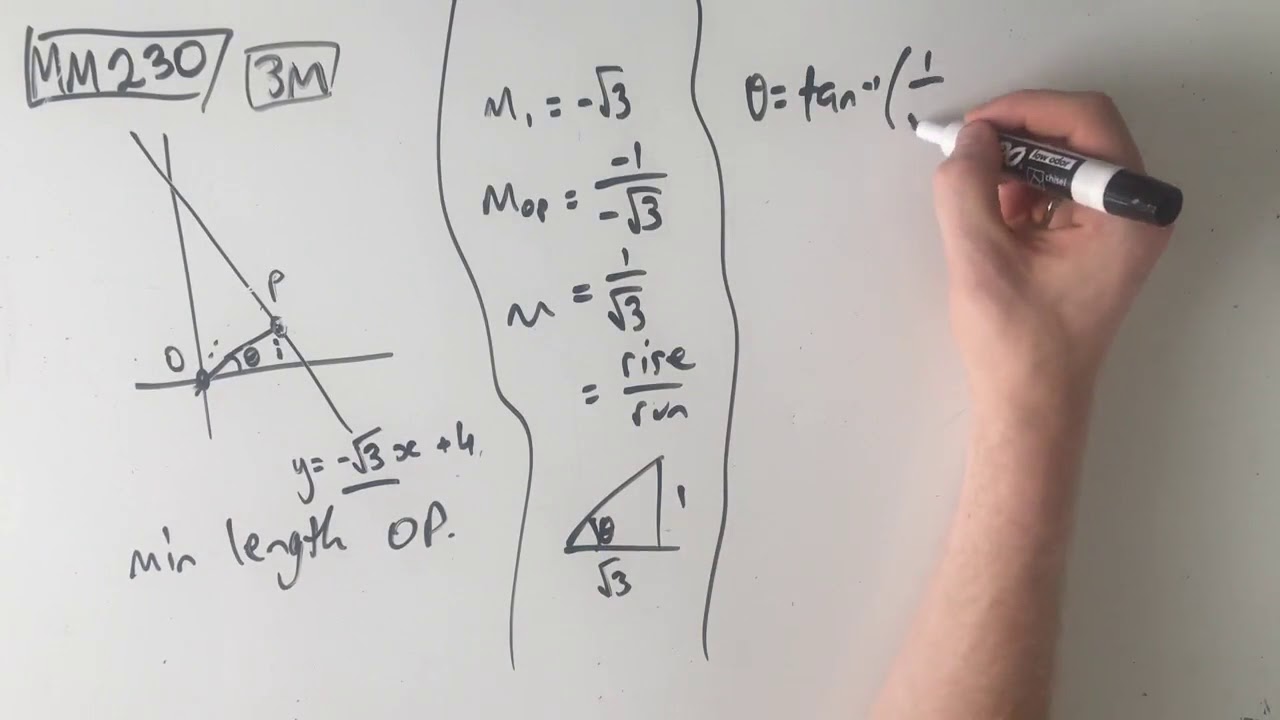 MM230 3M
P
O θ
y = -√3x + 4
min length OP.
M₁ = -√3
Mop = -1/-√3
M = 1/√3
= rise/run
θ 1
√3
θ = tan⁻¹(1
low odor
chisel